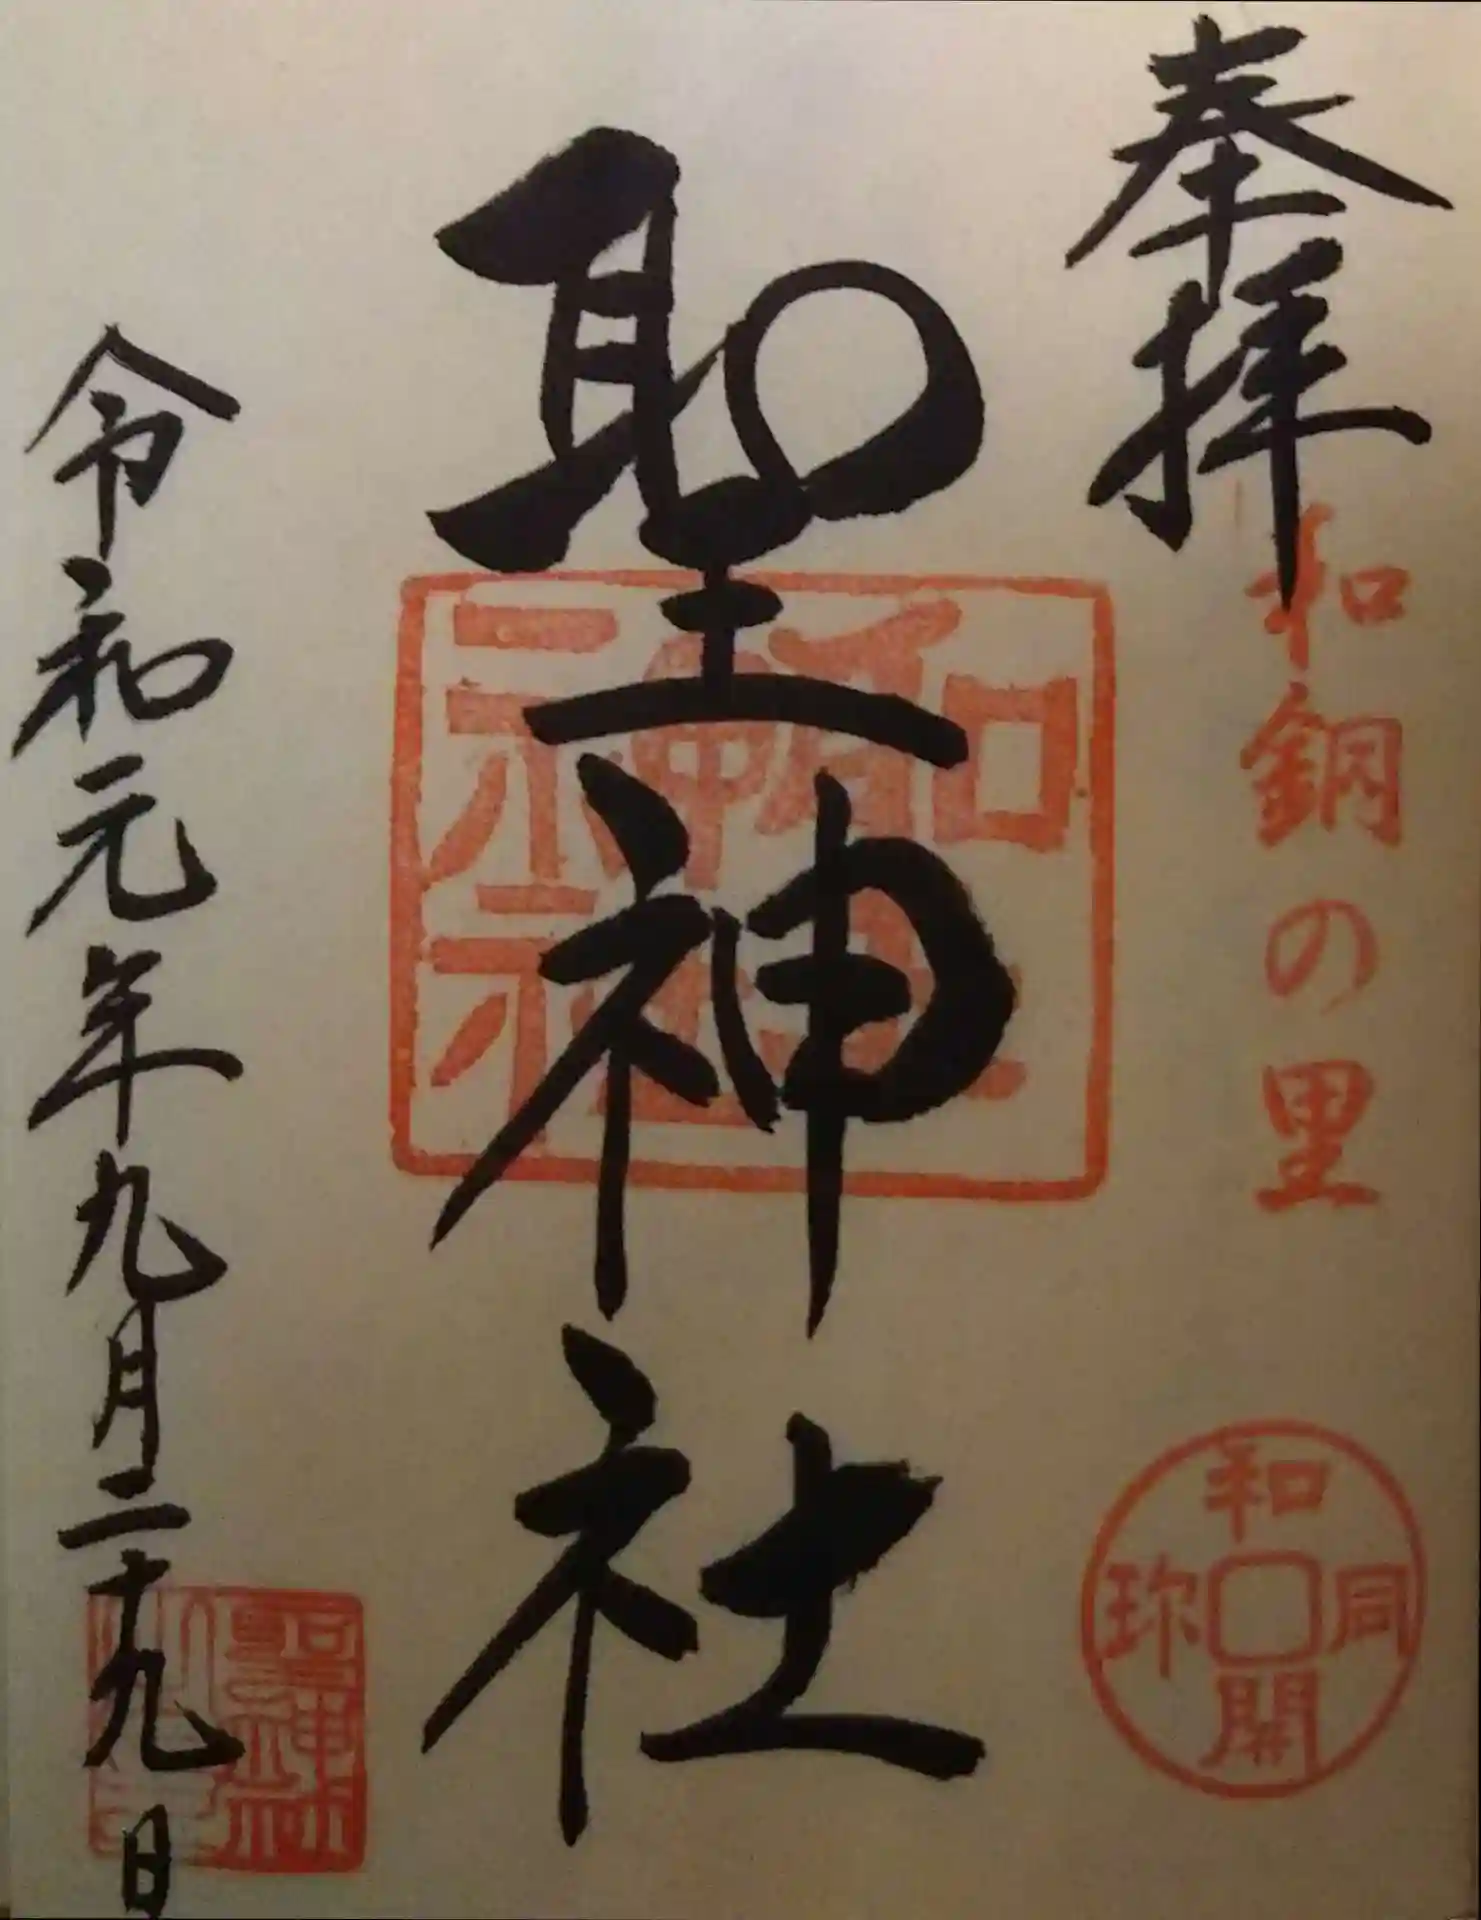 奉拝
和銅の里
和同開珎
聖神社
令和元年九月二十九日